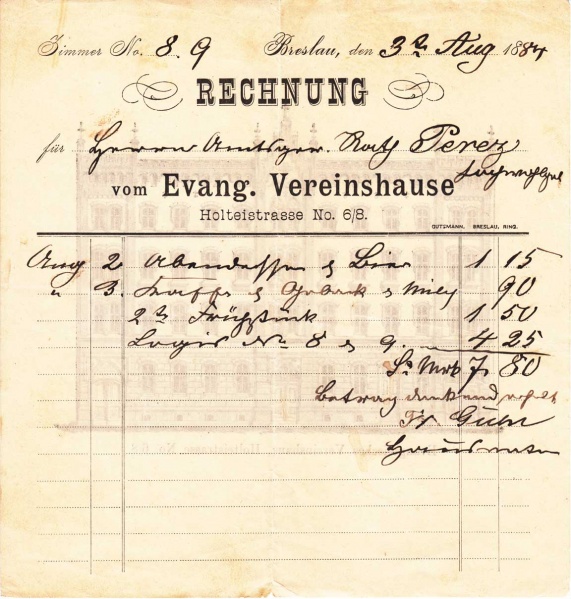 Zimmer No. 8. 9 Breslau, den 3ten Aug 1884
RECHNUNG
für Herrn Amtsger. Rath Perez
vom Evang. Vereinshause
Holteistrasse No. 6/8.
GUTSMANN, BRESLAU, RING.
Aug 2 Abendessen & Bier 1 15
" 3. Kaffe & Geback & Milch 90
2tes Frühstück 1 50
Logis No 8 & 9. 4 25
Sa Mrk 7. 80
Betrag dankend erhalt
Fr